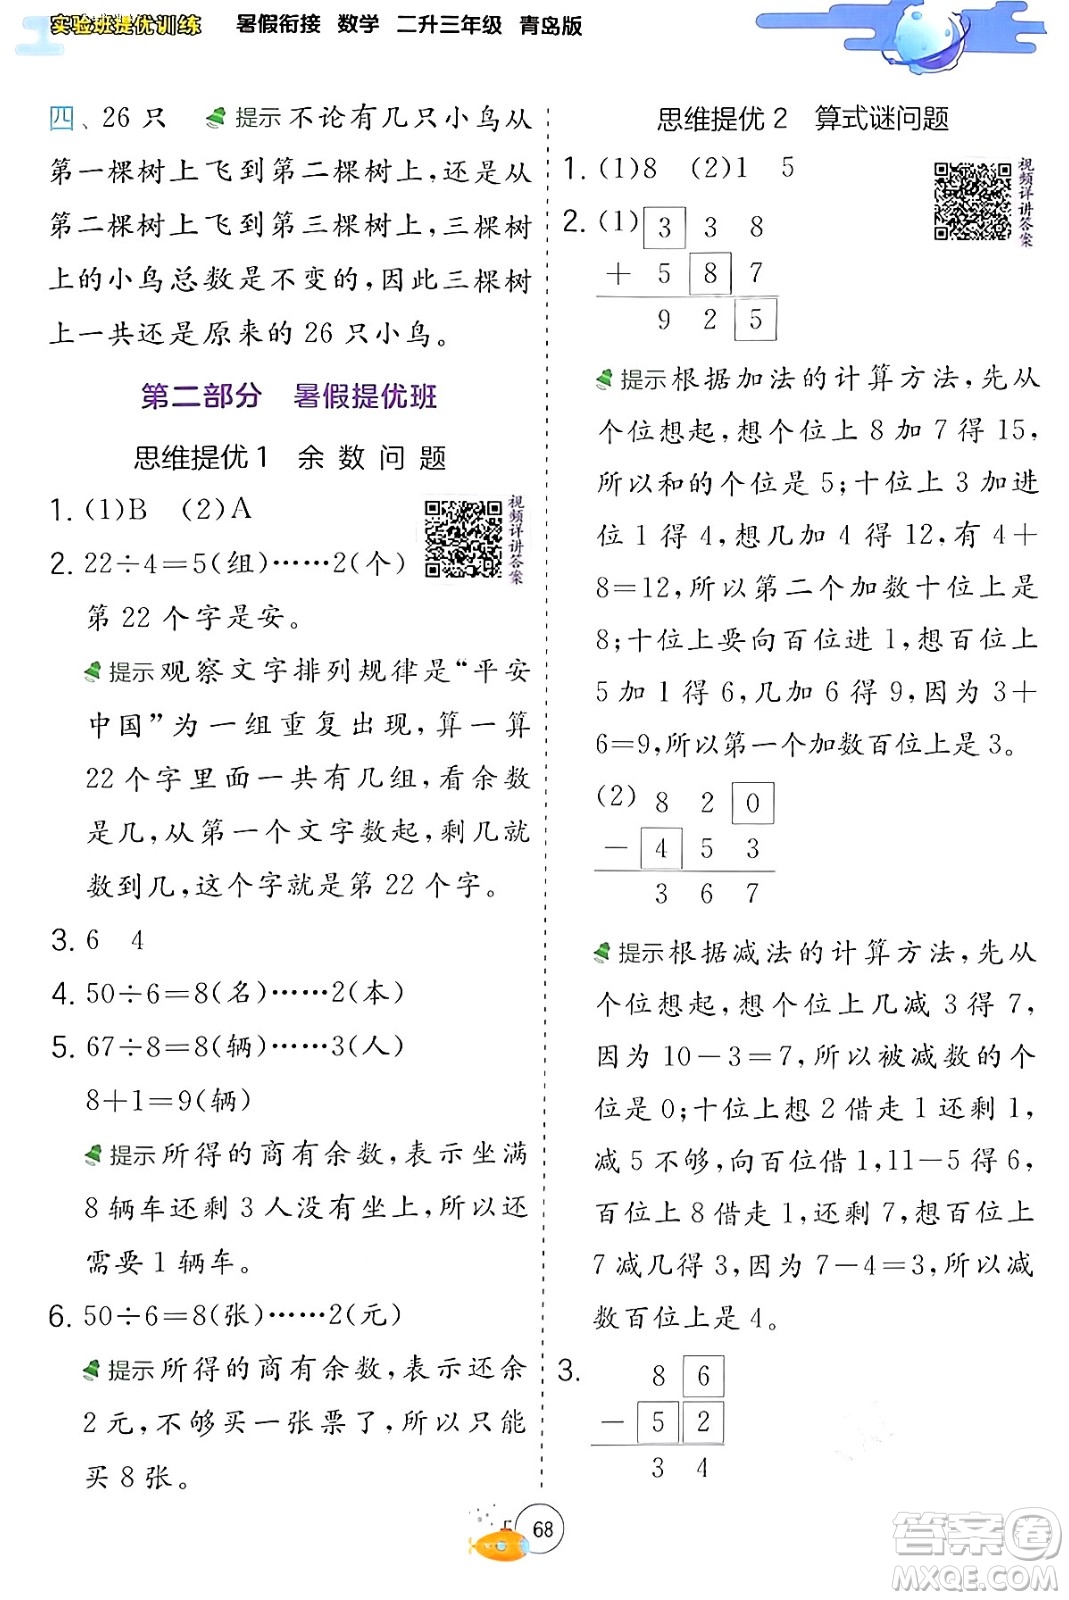 实验班提优训练 暑假衔接 数学 二升三年级 青岛版
四、26 只 提示 不论有几只小鸟从
第一棵树上飞到第二棵树上,还是从
第二棵树上飞到第三棵树上,三棵树
上的小鸟总数是不变的,因此三棵树
上一共还是原来的 26 只小鸟。
第二部分 暑假提优班
思维提优 1 余数问题
1. (1)B (2)A
视频详讲答案
2. 22÷4=5(组)……2(个)
第 22 个字是安。
提示 观察文字排列规律是“平安
中国”为一组重复出现,算一算
22 个字里面一共有几组,看余数
是几,从第一个文字数起,剩几就
数到几,这个字就是第 22 个字。
3. 6 4
4. 50÷6=8(名)……2(本)
5. 67÷8=8(辆)……3(人)
8+1=9(辆)
提示 所得的商有余数,表示坐满
8 辆车还剩 3 人没有坐上,所以还
需要 1 辆车。
6. 50÷6=8(张)……2(元)
提示 所得的商有余数,表示还余
2 元,不够买一张票了,所以只能
买 8 张。
思维提优 2 算式谜问题
1. (1)8 (2)1 5
视频详讲答案
2. (1) 3 3 8
+ 5 8 7
9 2 5
提示 根据加法的计算方法,先从
个位想起,想个位上 8 加 7 得 15,
所以和的个位是 5;十位上 3 加进
位 1 得 4,几加 4 得 12,有 4+
8=12,所以第二个加数十位上是
8;十位上要向百位进 1,想百位上
5 加 1 得 6,几加 6 得 9,因为 3+
6=9,所以第一个加数百位上是 3。
(2) 8 2 0
- 4 5 3
3 6 7
提示 根据减法的计算方法,先从
个位想起,想个位上几减 3 得 7,
因为 10-3=7,所以被减数的个
位是 0;十位上想 2 借走 1 还剩 1,
减 5 不够,向百位借 1,11-5 得 6,
百位上 8 借走 1,还剩 7,想百位上
7 减几得 3,因为 7-4=3,所以减
数百位上是 4。
3. 8 6
- 5 2
3 4
68
答案卷
MXQE.COM